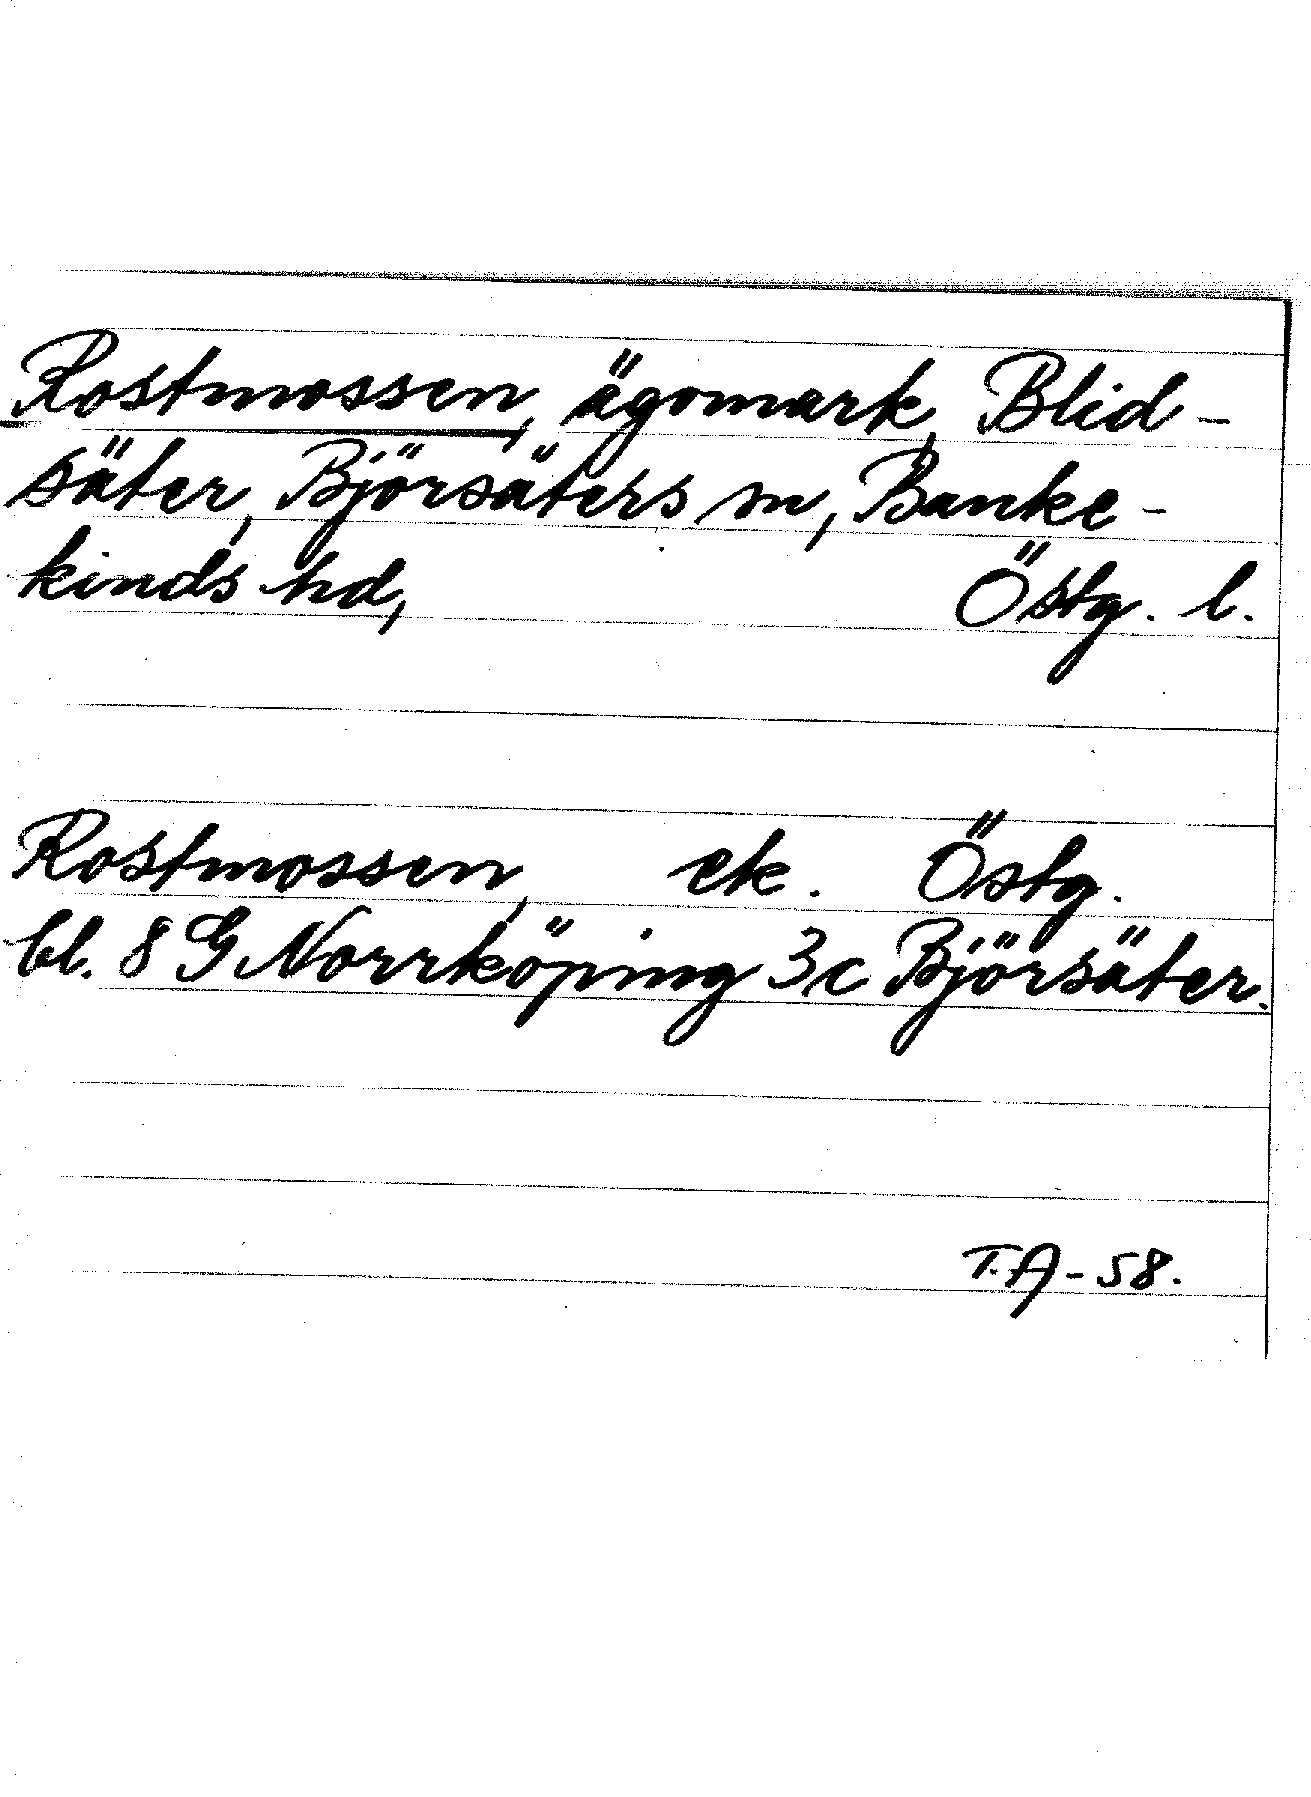 Rostmossen, ägomark, Blid-
säter, Björsäters sn, Banke-
kinds hd, Östg. l.
Rostmossen, ek. Östg.
bl. 8 G Norrköping 3c Björsäter.
T.A-58.